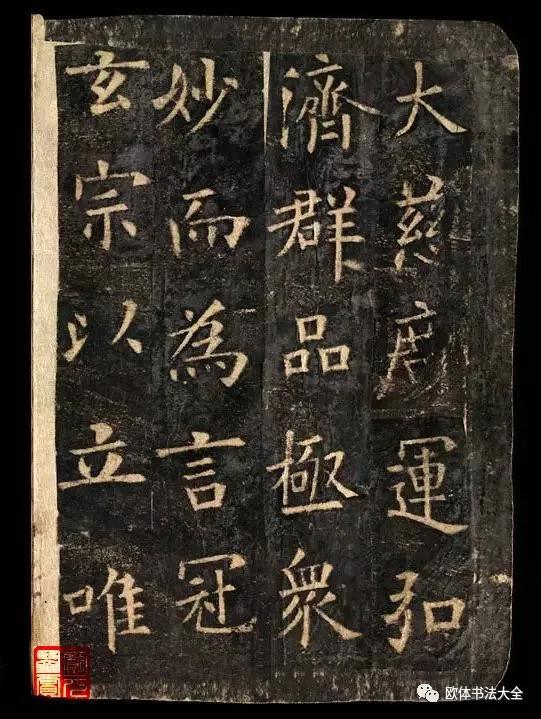 大慈庶運弘
濟群品極衆
妙而為言冠
玄宗以立唯
欧体书法大全